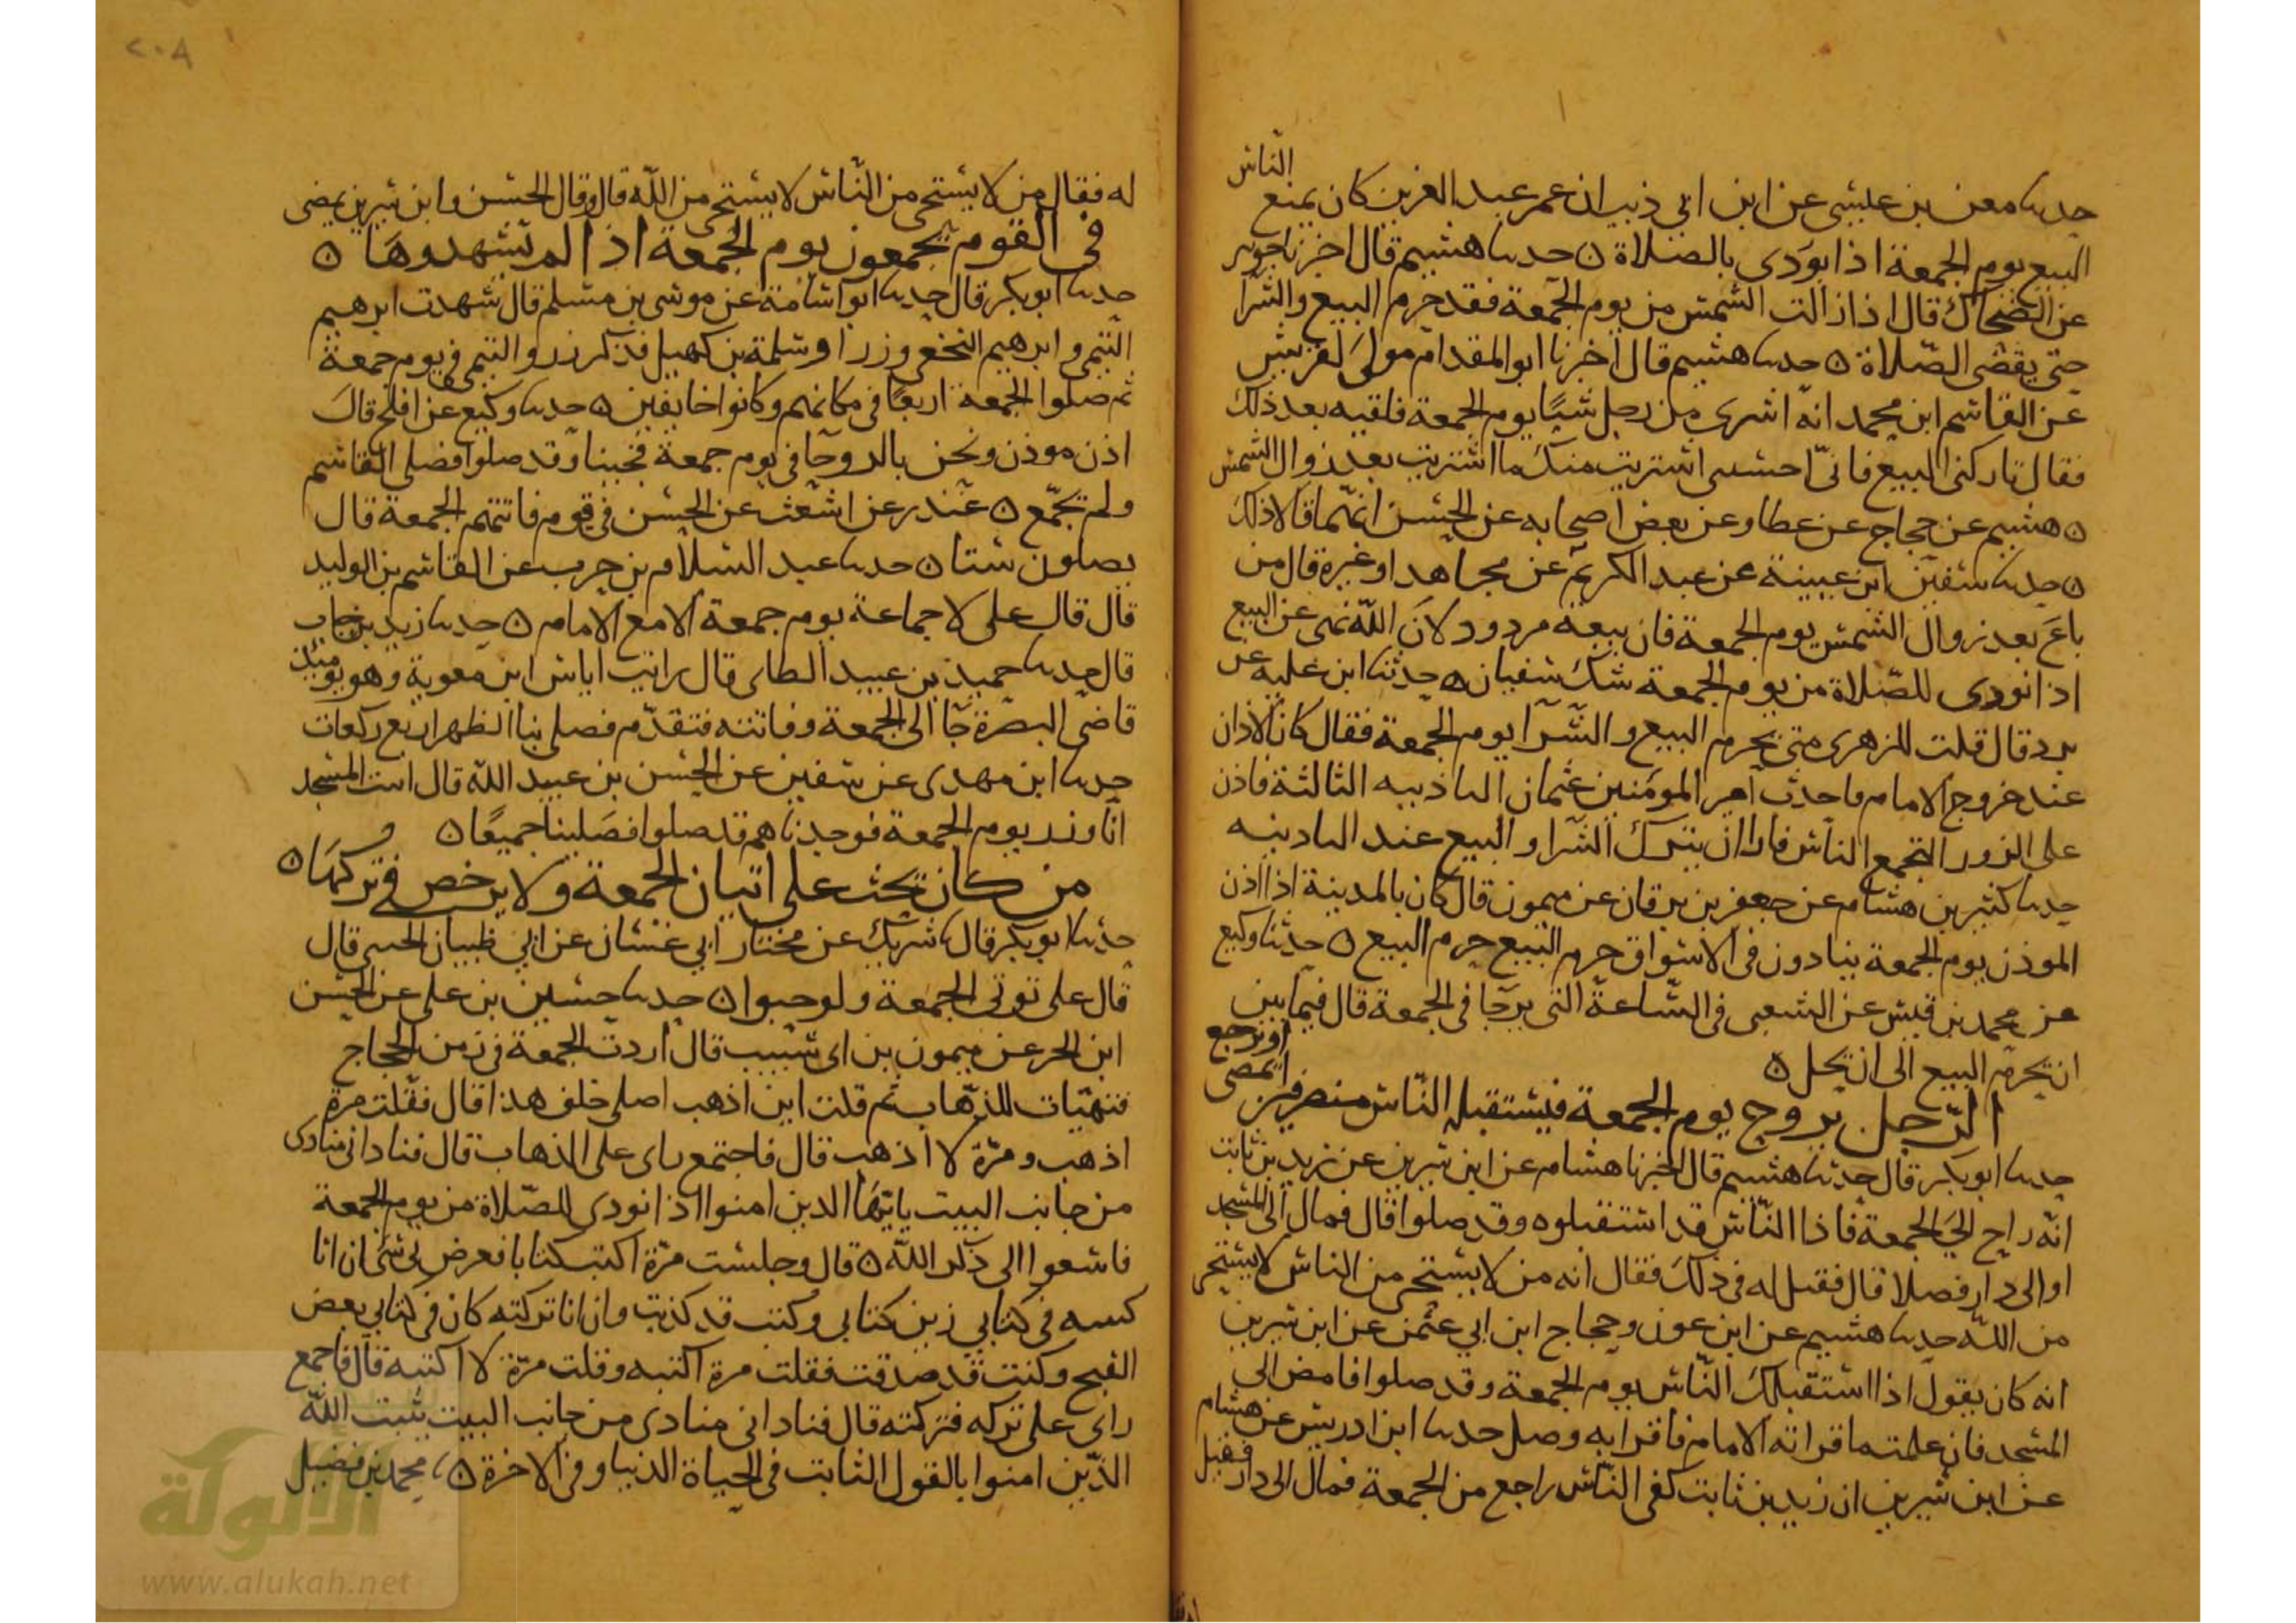 الناس
حدثنا معن بن عيسى عن ابن ابي ذيب ان عمر عبد العزيز كان يمنع
البيع يوم الجمعة اذا نودى بالصلاة ٥ حدثنا هشيم قال اخبرنا جويبر
عن الضحاك قال اذا زالت الشمس من يوم الجمعة فقد حرم البيع والشرا
حتى يقضى الصلاة ٥ حدثنا هشيم قال اخبرنا ابو المقدام مولى لقريش
عن القاسم ابن محمد انه اشرى من رجل شيا يوم الجمعة فلقيه بعد ذلك
فقال تاركنى البيع فانى احسبنى اشتريت منك ما اشتريت بعد زوال الشمس
٥ هشيم عن حجاج عن عطا وعن بعض اصحابه عن الحسن انهما قالا ذلك
٥ حدثنا سفين ابن عيينة عن عبد الكريم عن مجاهد او غيره قال من
باع بعد زوال الشمس يوم الجمعة فان بيعه مردود لان الله نهى عن البيع
اذا نودى للصلاة من يوم الجمعة شك سفيان ٥ حدثنا ابن علية عن
برد قال قلت للزهرى متى يحرم البيع والشرا يوم الجمعة فقال كان الاذان
عند خروج الامام فاحدث امير المومنين عثمان التاذينه الثالثة فاذن
على الزورا لتجمع الناس فارا ان يترك الشرا والبيع عند التادينه
حدثنا كثير بن هشام عن جعفر بن برقان عن ميمون قال كان بالمدينة اذا اذن
الموذن يوم الجمعة ينادون في الاسواق حرم البيع حرم البيع ٥ حدثنا وكيع
عن محمد بن قيس عن الشعبى فى الساعة التى يرجا فى الجمعة قال فيما بين
ان يحرم البيع الى ان يحل ٥
الرجل يروح يوم الجمعة فيستقبله الناس منصرفين ايمضى او يرجع
حدثنا ابو بكر قال حدثنا هشيم قال اخبرنا هشام عن ابن سيرين عن زيد بن ثابت
انه راح الى الجمعة فاذا الناس قد استقبلوه وقد صلوا قال فمال الى المسجد
او الى دار فصلا قال فقيل له فى ذلك فقال انه من لا يستحى من الناس لا يستحى
من الله حدثنا هشيم عن ابن عون وحجاج ابن ابي عثمن عن ابن سيرين
انه كان يقول اذا استقبلك الناس يوم الجمعة وقد صلوا فامض الى
المسجد فان علمت ما قرا به الامام فاقرا به وصل حدثنا ابن ادريس عن هشام
عن ابن سيرين ان زيد بن ثابت لقى الناس راجع من الجمعة فمال الى دار فقيل
٢٠٨
له فقال من لا يستحى من الناس لا يستحى من الله قال وقال الحسن وابن سيرين يمضى
فى القوم يجمعون يوم الجمعة اذا لم يشهدوها ٥
حدثنا ابو بكر قال حدثنا ابو اسامة عن موسى بن مسلم قال شهدت ابرهيم
التيمى وابرهيم النخعى وزرا وسلمة بن كهيل فذكر زر والتيمى فى يوم جمعة
ثم صلوا الجمعة اربعا فى مكانهم وكانوا خايفين ٥ حدثنا وكيع عن افلح قال
اذن موذن ونحن بالروحا فى يوم جمعة فجينا وقد صلوا فصلى القاسم
ولم يجمع ٥ غندر عن اشعث عن الحسن فى قوم فاتتهم الجمعة قال
يصلون ستا ٥ حدثنا عبد السلام بن حرب عن القاسم بن الوليد
قال قال على لا جماعة يوم جمعة الا مع الامام ٥ حدثنا زيد بن حباب
قال حدثنا حميد بن عبيد الطاى قال رايت اياس ابن معوية وهو يوميذ
قاضى البصرة جا الى الجمعة وفاتته فتقدم فصلى بنا الظهر اربع ركعات
حدثنا ابن مهدى عن سفين عن الحسن بن عبيد الله قال اتيت المسجد
انا وزر يوم الجمعة فوجدناهم قد صلوا فصلينا جميعا ٥
من كان يحث على اتيان الجمعة ولا يرخص في تركها ٥
حدثنا ابو بكر قال شريك عن مختار ابي غسان عن ابي ظبيان الجنبى قال
قال على توتى الجمعة ولو حبوا ٥ حدثنا حسين بن على عن الحسن
ابن الحر عن ميمون بن ابى شبيب قال اردت الجمعة فى زمن الحجاج
فتهيات للذهاب ثم قلت اين اذهب اصلى خلف هذا قال فقلت مرة
اذهب ومرة لا اذهب قال فاجتمع راى على الذهاب قال فنادانى منادى
من جانب البيت يايها الدين امنوا اذا نودى للصلاة من يوم الجمعة
فاسعوا الى ذكر الله ٥ قال وجلست مرة اكتب كتابا فعرض لى شى ان انا
كتبته فى كتابي زين كتابى وكنت قد كذبت وان انا تركته كان فى كتابى بعض
القبح وكنت قد صدقت فقلت مرة اكتبه وقلت مرة لا اكتبه قال فاجمع
راى على تركه فتركته قال فنادانى منادى من جانب البيت يثبت الله
الذين امنوا بالقول الثابت فى الحياة الدنيا وفى الاخرة ٥ محمد بن فضيل
الألوكة
www.alukah.net